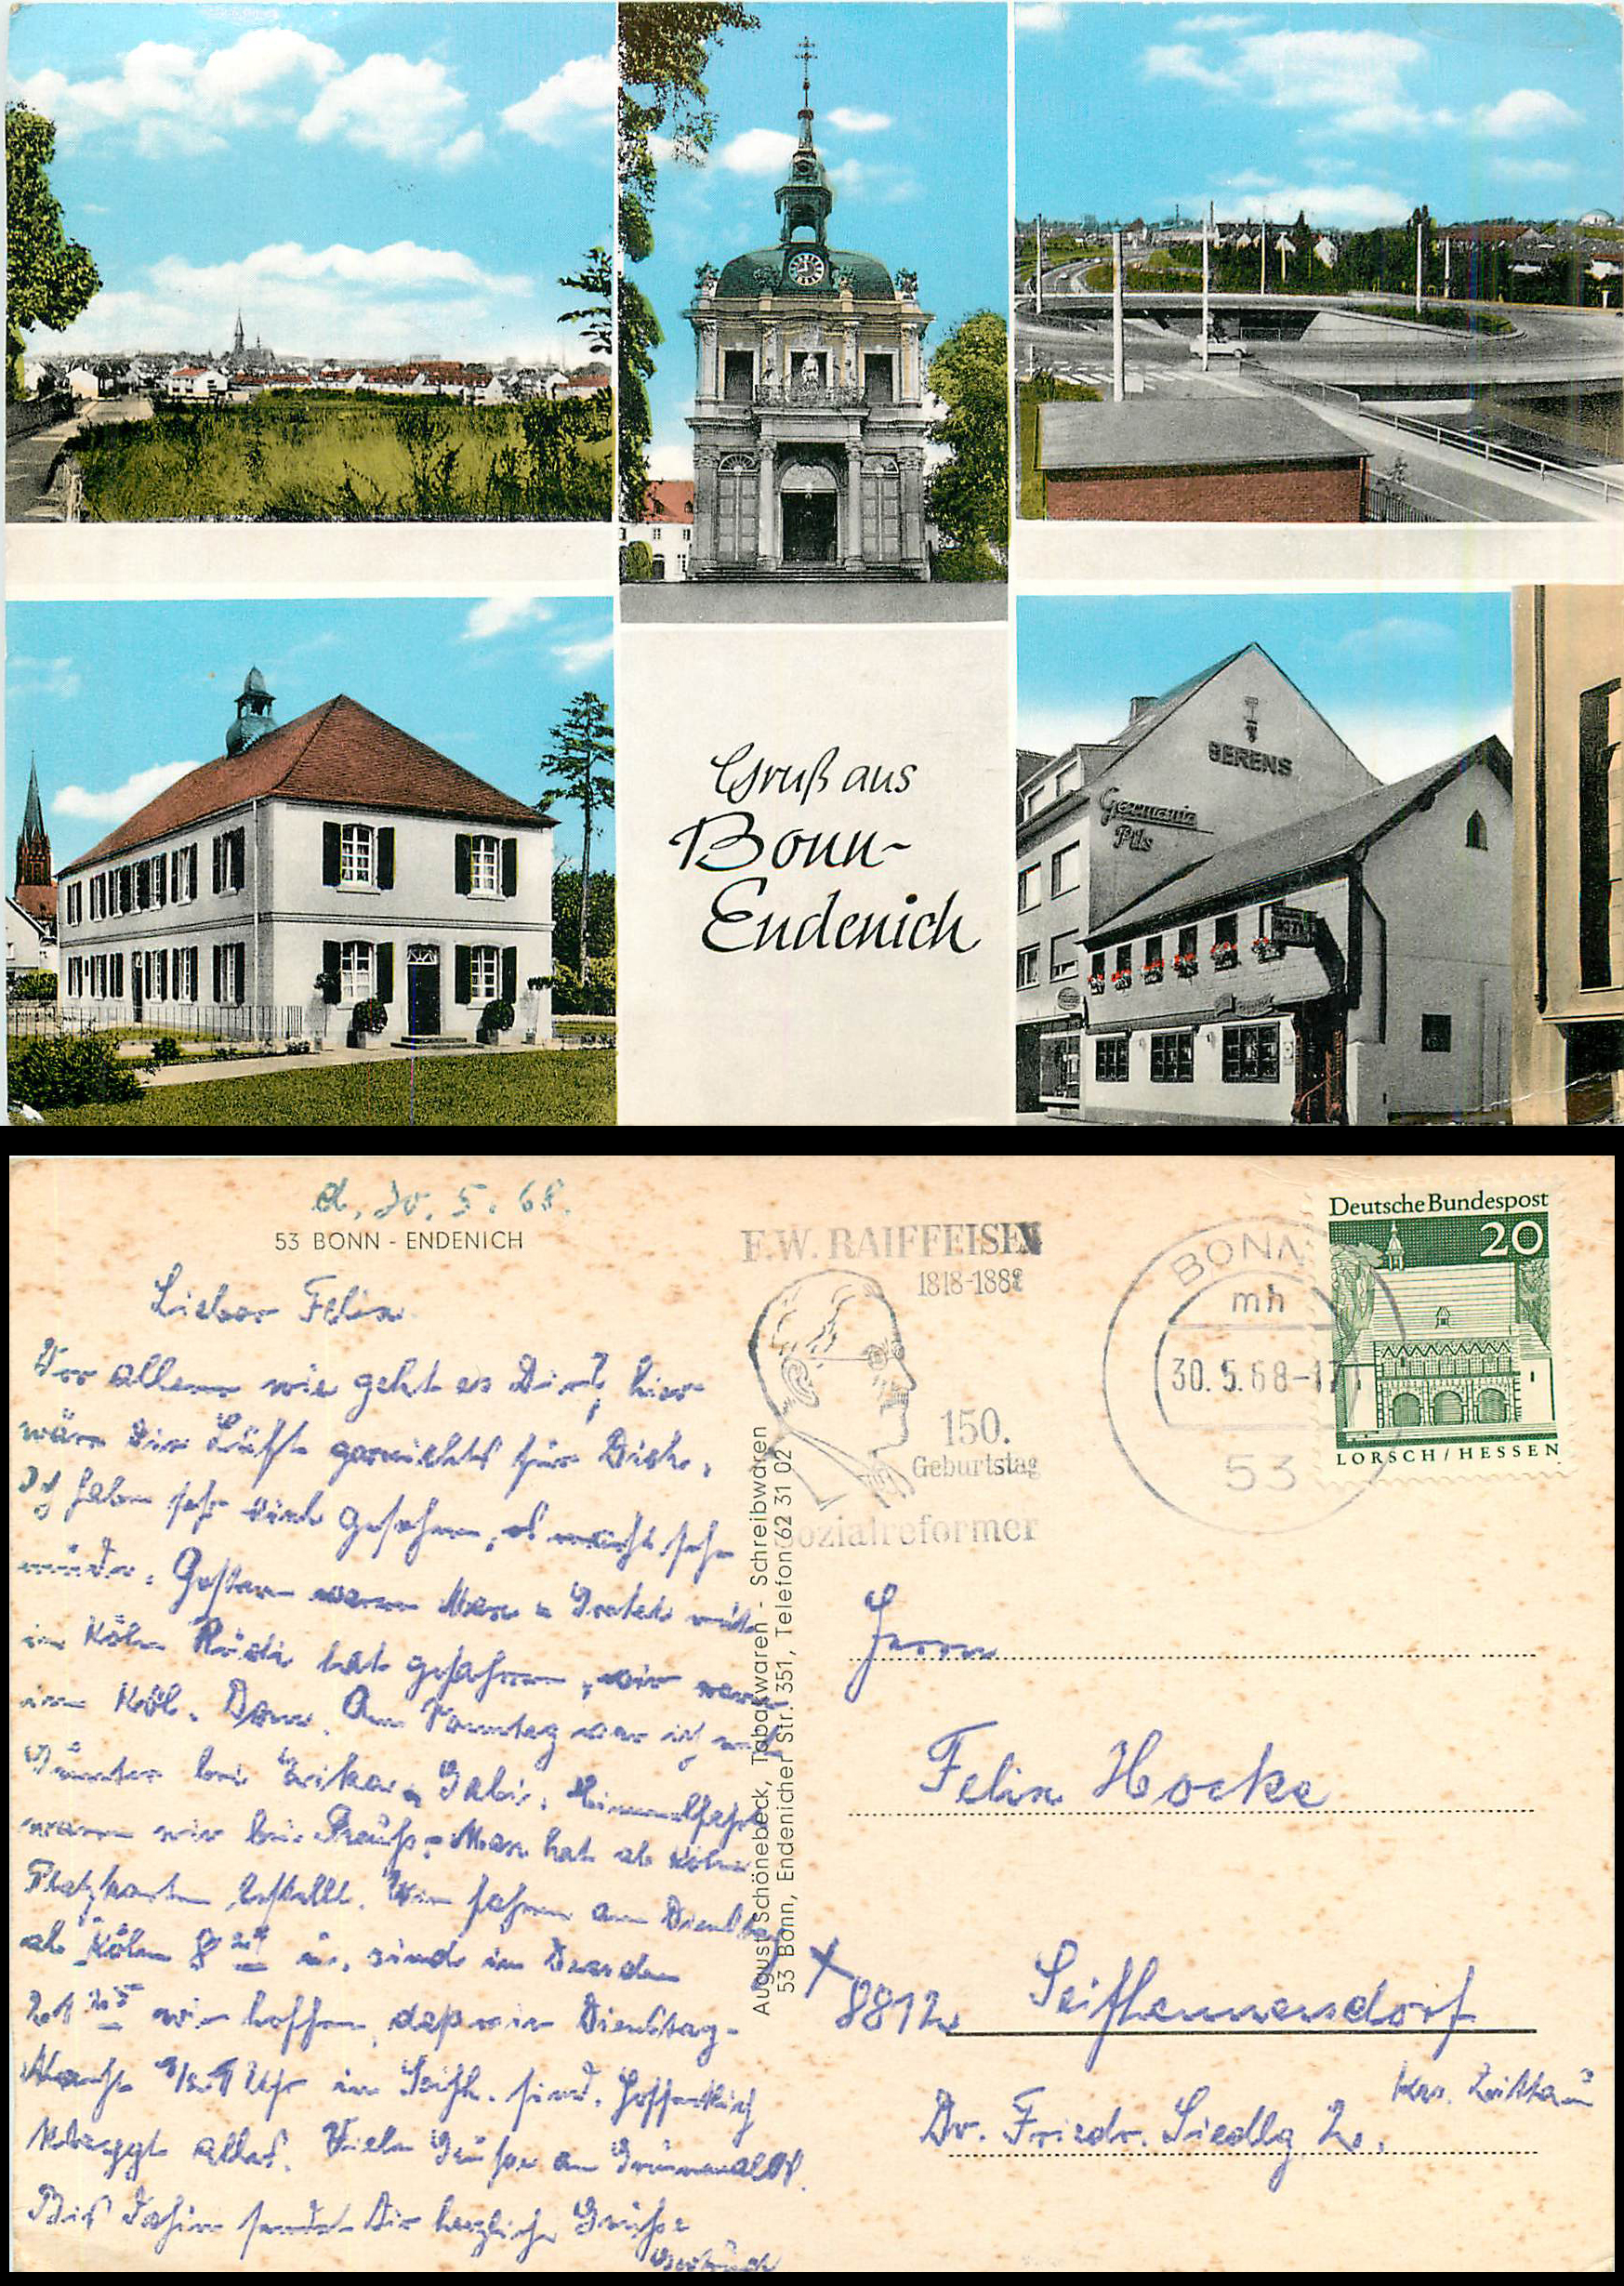 GERENS
Germania
Pils
Gruß aus
Bonn-
Endenich
d. 30. 5. 68.
53 BONN - ENDENICH
Lieber Felix
Vor allem wie geht es Dir?, hier
wäre die Lüfte garnichts für Dich.
Ich habe sehr viel gesehen, es macht sehr
müde. Gestern waren Max u Gretel mit
in Köln Rudi hat gefahren, wir waren
im Köl. Dom. Am Sonntag war ich mit
Günter bei Erika u Gabi. Himmelfahrt
waren wir bei Preuß. Max hat ab Köln
Platzkarten bestellt. Wir fahren am Dienstag
ab Köln 8 u. sind in Dresden
21 25 wir hoffen, daß wir Dienstag-
Nacht Uhr in Seifh. sind. Hoffentlich
klappt alles. Viele Grüße an
Bis dahin sendet Dir herzliche Grüße
August Schönebeck, Tabakwaren - Schreibwaren
53 Bonn, Endenicher Str. 351, Telefon 62 31 02
F.W. RAIFFEISEN
1818-1888
150.
Geburtstag
Sozialreformer
BONN
mh
30.5.68-17
53
Deutsche Bundespost
20
LORSCH/HESSEN
Herrn
Felix Hocke
x 8812 Seifhennersdorf
Krs. Zittau
Dr. Friedr. Siedlg 2.